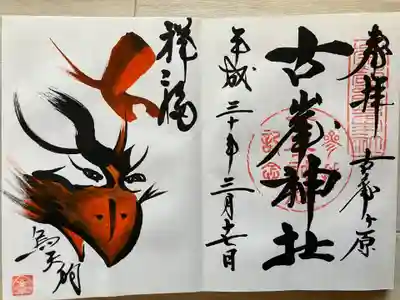 奉拝
古峯ヶ原
古峯神社
平成三十年三月十七日
烏天狗